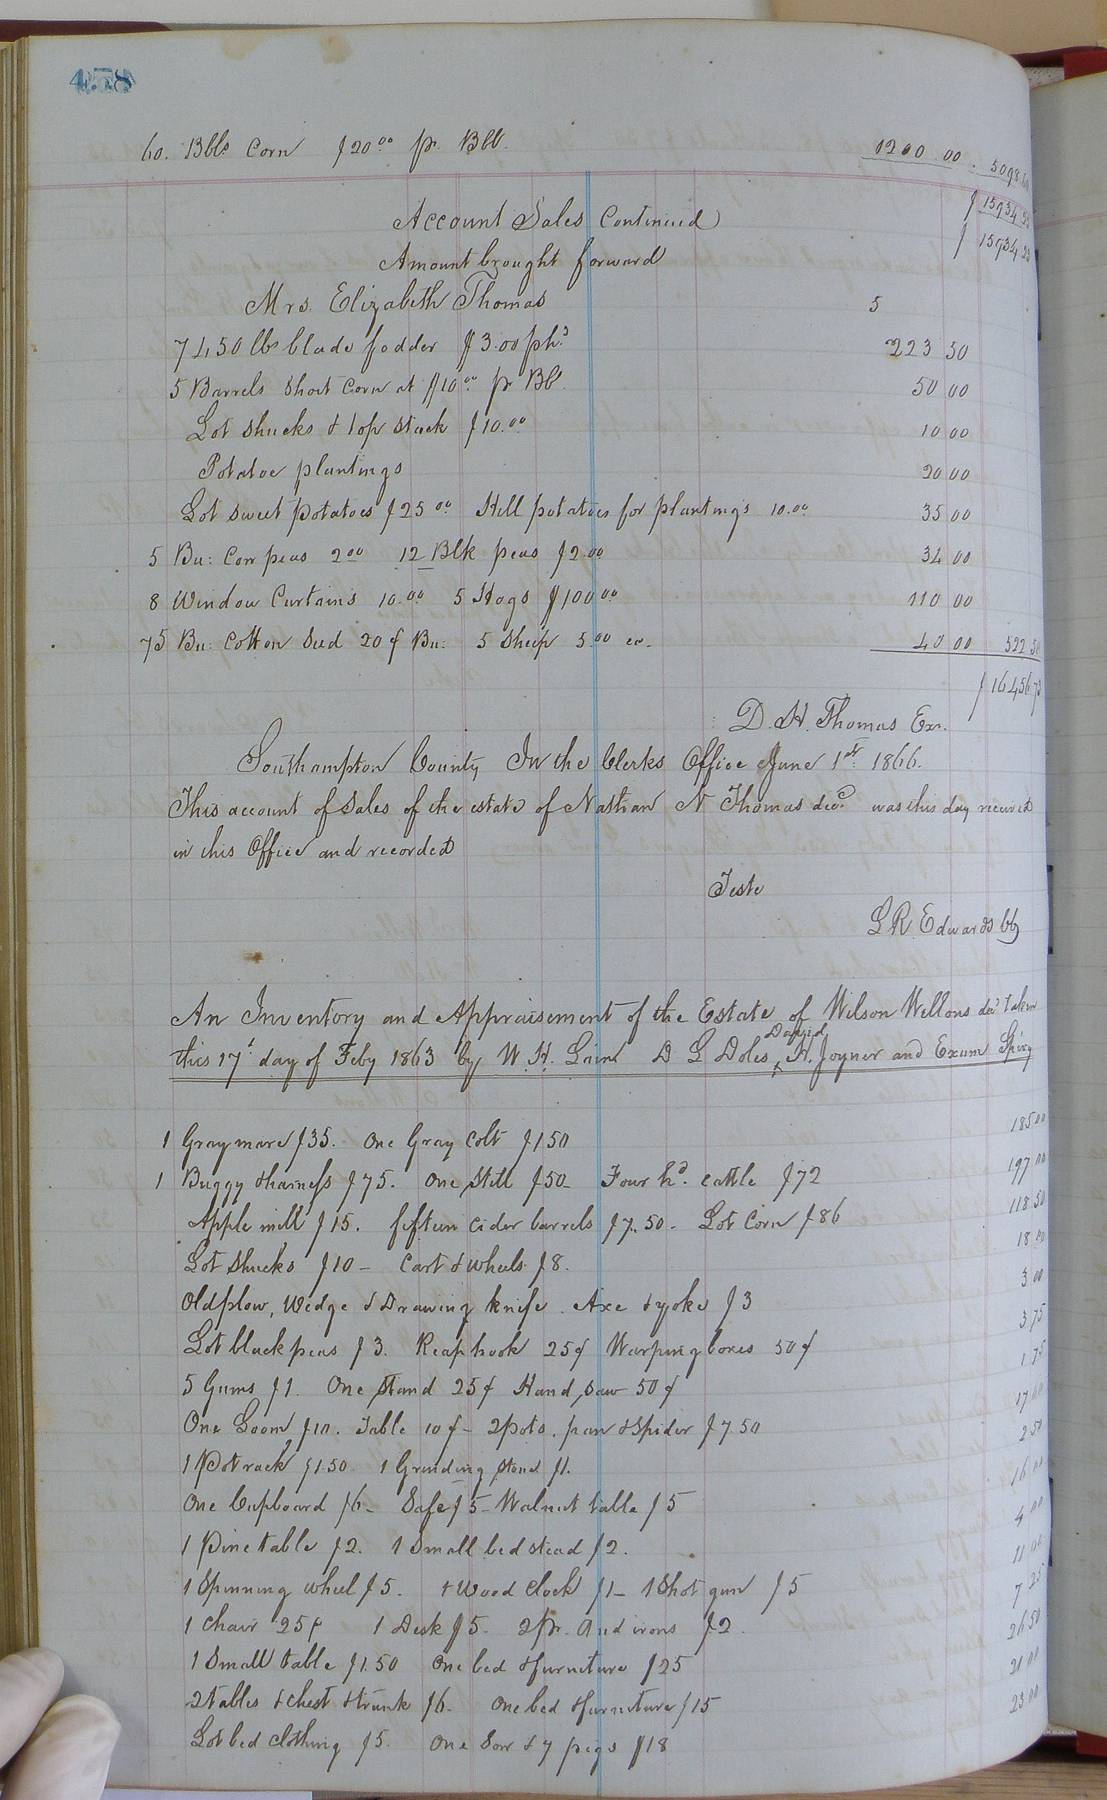 458
60. Bbls Corn $20.00 pr. Bbl. 1200.00. 5098
$15934
Account Sales Continued
Amount brought forward $15934 23
Mrs. Elizabeth Thomas 5
7450 lbs blade fodder $3.00 phd 223 50
5 Barrels Short Corn at $10.00 pr Bbl. 50 00
Lot shucks & top stack $10.00 10 00
Potatoe plantings 20 00
Lot sweet potatoes $25.00 Hill potatoes for plantings 10.00 35 00
5 Bu: Corn peas 2.00 12 Blk peas $2.00 34 00
8 Window Curtains 10.00 5 Hogs $100.00 110 00
75 Bu: Cotton Seed 20¢ Bu: 5 Sheep 5.00 ea. 40 00 522 50
$16456 73
D. H. Thomas Exr.
Southampton County In the Clerks Office June 1st 1866.
This account of Sales of the estate of Nathan N Thomas decd was this day received
in this Office and recorded
Teste
L R Edwards CC
An Inventory and Appraisement of the Estate of Wilson Wellons decd taken
this 17t day of Feby 1863 by W. H. D L Doles, David H. Joyner and Exum Spivy
1 Gray mare $35. One Gray Colt $150 185 00
1 Buggy & harness $75. One Still $50 - Four hd. cattle $72 197 00
Apple mill $15. fifteen cider barrels $7.50 - Lot Corn $86 118 50
Lot Shucks $10 - Cart & wheels $8. 18 00
Old plow, Wedge & Drawing knife. Axe & yoke $3 3 00
Lot black peas $3. Reap hook 25¢ Warping boxes 50¢ 3 75
5 Gums $1. One Stand 25¢ Hand saw 50¢ 1 75
One Loom $10. Table 10¢ - 2 pots, pan & Spider $7.50 17 60
1 Pot rack $1.50 1 Grinding Stone $1. 2 50
One Cupboard $6 - Safe $5 - Walnut table $5 16 00
1 Pine table $2. 1 Small bed stead $2. 4 00
1 Spinning wheel $5. 1 Wood Clock $1 - 1 Shot gun $5 11 00
1 Chair 25¢ 1 Desk $5. 2 Pr. And irons $2. 7 25
1 Small table $1.50 One bed & furniture $25 26 50
2 tables & chest & trunk $6. One bed & furniture $15 21 00
Lot bed clothing $5. One Sow & 7 pigs $18 23 00